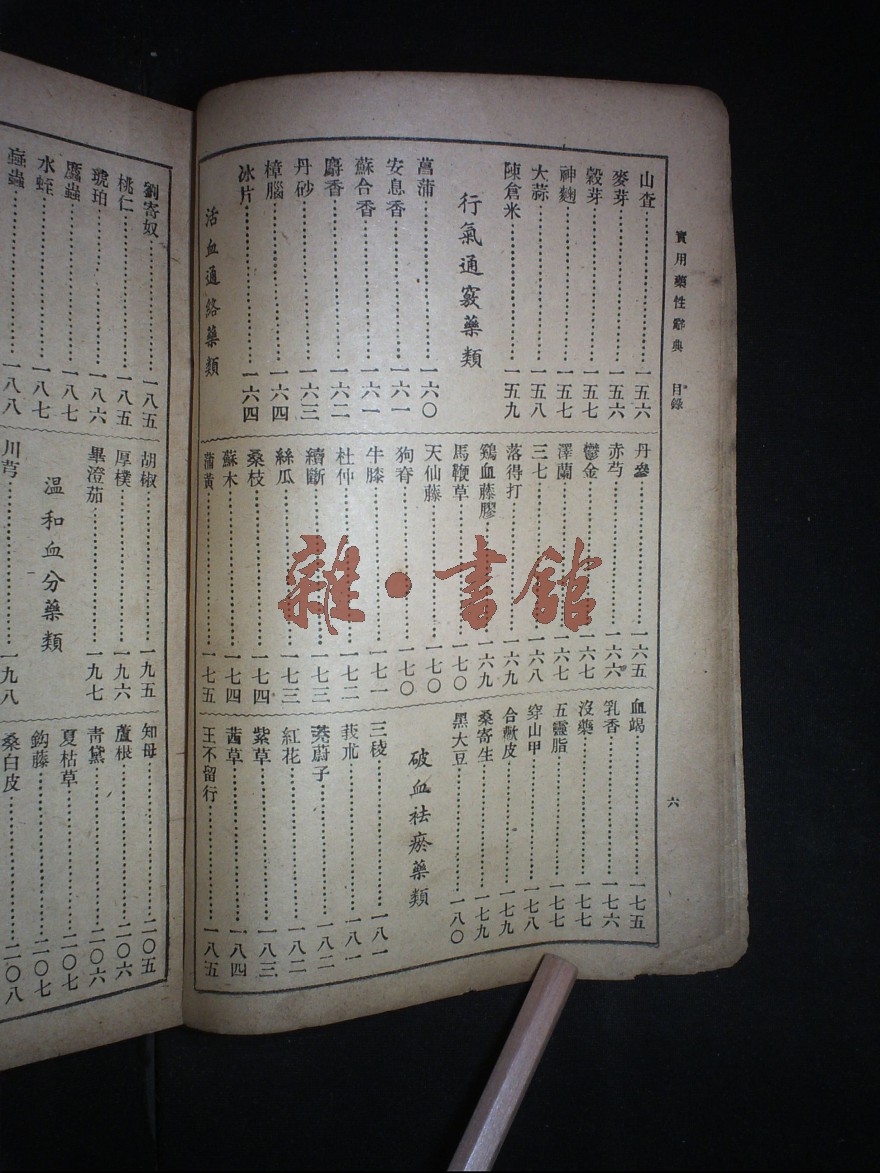 實用藥性辭典 目錄
六
山査 一五六
麥芽 一五六
穀芽 一五七
神麯 一五七
大蒜 一五八
陳倉米 一五九
行氣通竅藥類
菖蒲 一六〇
安息香 一六一
蘇合香 一六一
麝香 一六二
丹砂 一六三
樟腦 一六四
冰片 一六四
活血通絡藥類
丹參 一六五
赤芍 一六六
鬱金 一六七
澤蘭 一六七
三七 一六八
落得打 一六九
鷄血藤膠 一六九
馬鞭草 一七〇
天仙藤 一七〇
狗脊 一七〇
牛膝 一七一
杜仲 一七二
續斷 一七三
絲瓜 一七三
桑枝 一七四
蘇木 一七四
蒲黃 一七五
血竭 一七五
乳香 一七六
沒藥 一七七
五靈脂 一七七
穿山甲 一七八
合歡皮 一七九
桑寄生 一七九
黑大豆 一八〇
破血祛瘀藥類
三稜 一八一
莪朮 一八一
茺蔚子 一八二
紅花 一八二
紫草 一八三
茜草 一八四
王不留行 一八五
劉寄奴 一八五
桃仁 一八五
琥珀 一八六
䗪蟲 一八七
水蛭 一八七
蝱蟲 一八八
胡椒 一九五
厚樸 一九六
畢澄茄 一九七
温和血分藥類
川芎 一九八
知母 二〇五
蘆根 二〇六
靑黛 二〇六
夏枯草 二〇七
鈎藤 二〇七
桑白皮 二〇八
雜·書館